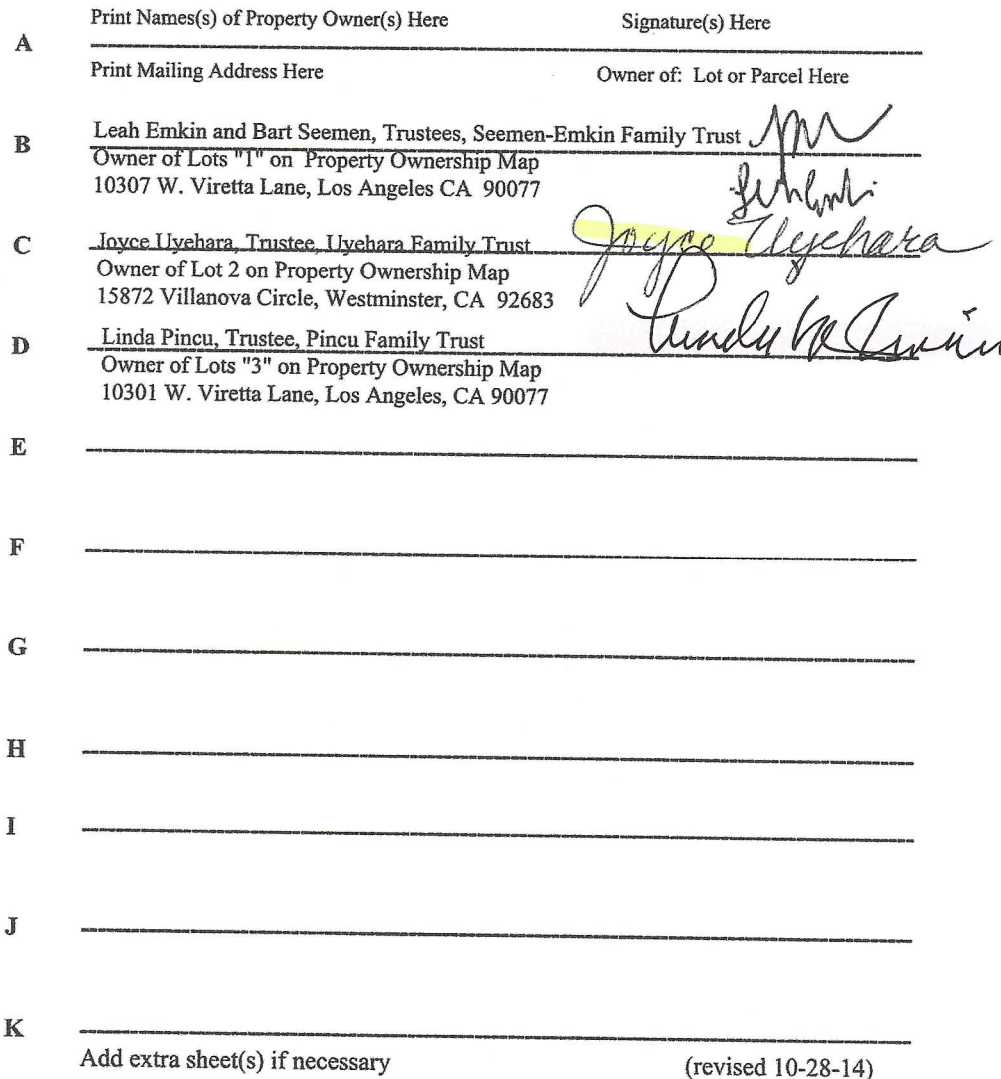 Print Names(s) of Property Owner(s) Here Signature(s) Here
A
Print Mailing Address Here Owner of: Lot or Parcel Here
B Leah Emkin and Bart Seemen, Trustees, Seemen-Emkin Family Trust
Owner of Lots "1" on Property Ownership Map
10307 W. Viretta Lane, Los Angeles CA 90077
C Joyce Uyehara, Trustee, Uyehara Family Trust Joyce Uyehara
Owner of Lot 2 on Property Ownership Map
15872 Villanova Circle, Westminster, CA 92683
D Linda Pincu, Trustee, Pincu Family Trust
Owner of Lots "3" on Property Ownership Map
10301 W. Viretta Lane, Los Angeles, CA 90077
E
F
G
H
I
J
K
Add extra sheet(s) if necessary (revised 10-28-14)